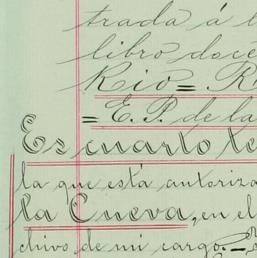 trada á l
libro doce
Rio = R
= E. P. de la
Es cuarto te
la que está autoriza
la Cueva, en el
chivo de mi cargo. —